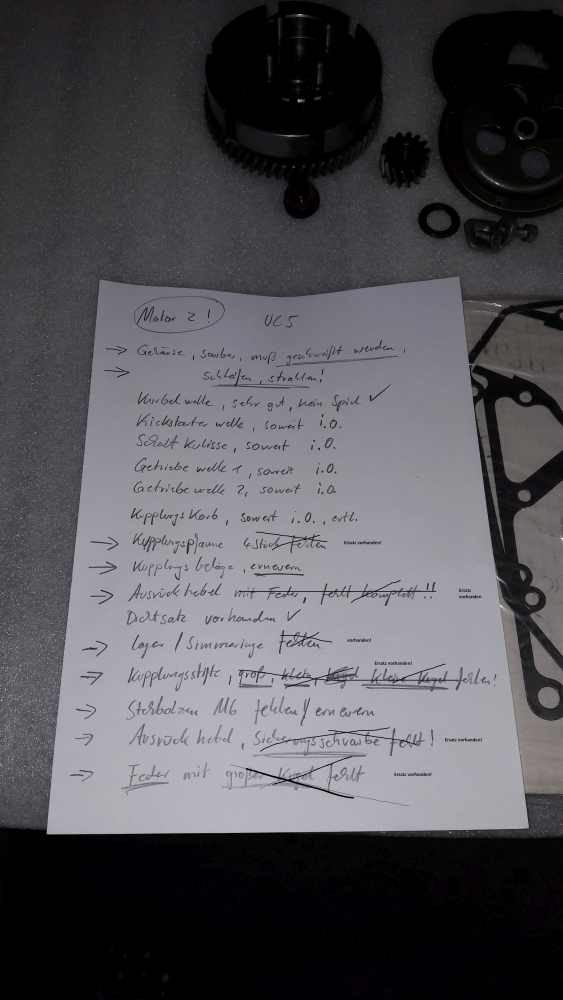 Motor 2! UC5
→ Gehäuse, sauber, muß geschweißt werden,
→ Schleifen, strahlen!
Kurbelwelle, sehr gut, kein Spiel ✓
Kickstarterwelle, soweit i.O.
Schalt Kulisse, soweit i.O.
Getriebewelle 1, soweit i.O.
Getriebewelle 2, soweit i.O.
Kupplungs Korb, soweit i.O., evtl.
→ Kupplungspfanne 4 Stück fehlen Ersatz vorhanden!
→ Kupplungs beläge, erneuern
→ Ausrückhebel mit Feder, fehlt komplett!! Ersatz vorhanden
Dichtsatz vorhanden ✓
→ Lager / Simmeringe fehlen vorhanden!
→ Kupplungsstifte, groß, klein, Kugel kleine Kugel fehlen! Ersatz vorhanden!
→ Stehbolzen M6 fehlen / erneuern
→ Ausrück hebel, Sicherungsschraube fehlt! Ersatz vorhanden!
→ Feder mit großer Kugel fehlt Ersatz vorhanden!